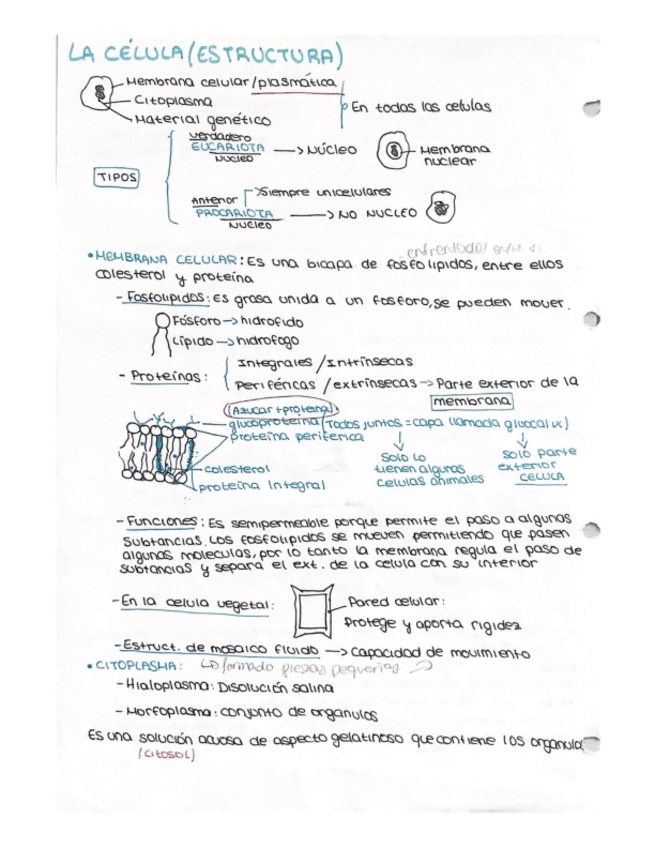 LA CÉLULA (ESTRUCTURA)
Membrana celular/plasmática
Citoplasma
Material genético
En todas las celulas
TIPOS
verdadero
EUCARIOTA
NUCLEO
→ NÚCLEO
Membrana
nuclear
Anterior
PROCARIOTA
NUCLEO
→ Siempre unicelulares
→ NO NUCLEO
enfrentados entre si
• MEMBRANA CELULAR: Es una bicapa de fosfolipidos, entre ellos
colesterol y proteína
- Fosfolipidos: Es grasa unida a un fosforo, se pueden mover.
Fósforo → hidrofido
Lípido → hidrofogo
- Proteínas:
Integrales / Intrínsecas
Periféricas / extrínsecas → Parte exterior de la
membrana
(Azucar + proteina)
glucoproteína (Todos juntos = capa llamada glucocalix)
proteína periferica
colesterol
proteína Integral
Solo lo
tienen algunas
celulas animales
Solo parte
exterior
CELULA
- Funciones: Es semipermeable porque permite el paso a algunas
substancias. Los fosfolipidos se mueven permitiendo que pasen
algunas moleculas, por lo tanto la membrana regula el paso de
substancias y separa el ext. de la celula con su interior
- En la celula vegetal:
Pared celular:
Protege y aporta rigidez
- Estruct. de mosaico fluido → capacidad de movimiento
• CITOPLASMA:
↳ formado piezas pequeñas
- Hialoplasma: Disolución salina
- Morfoplasma: conjunto de organulos
Es una solución acuosa de aspecto gelatinoso que contiene los organula
(citosol)